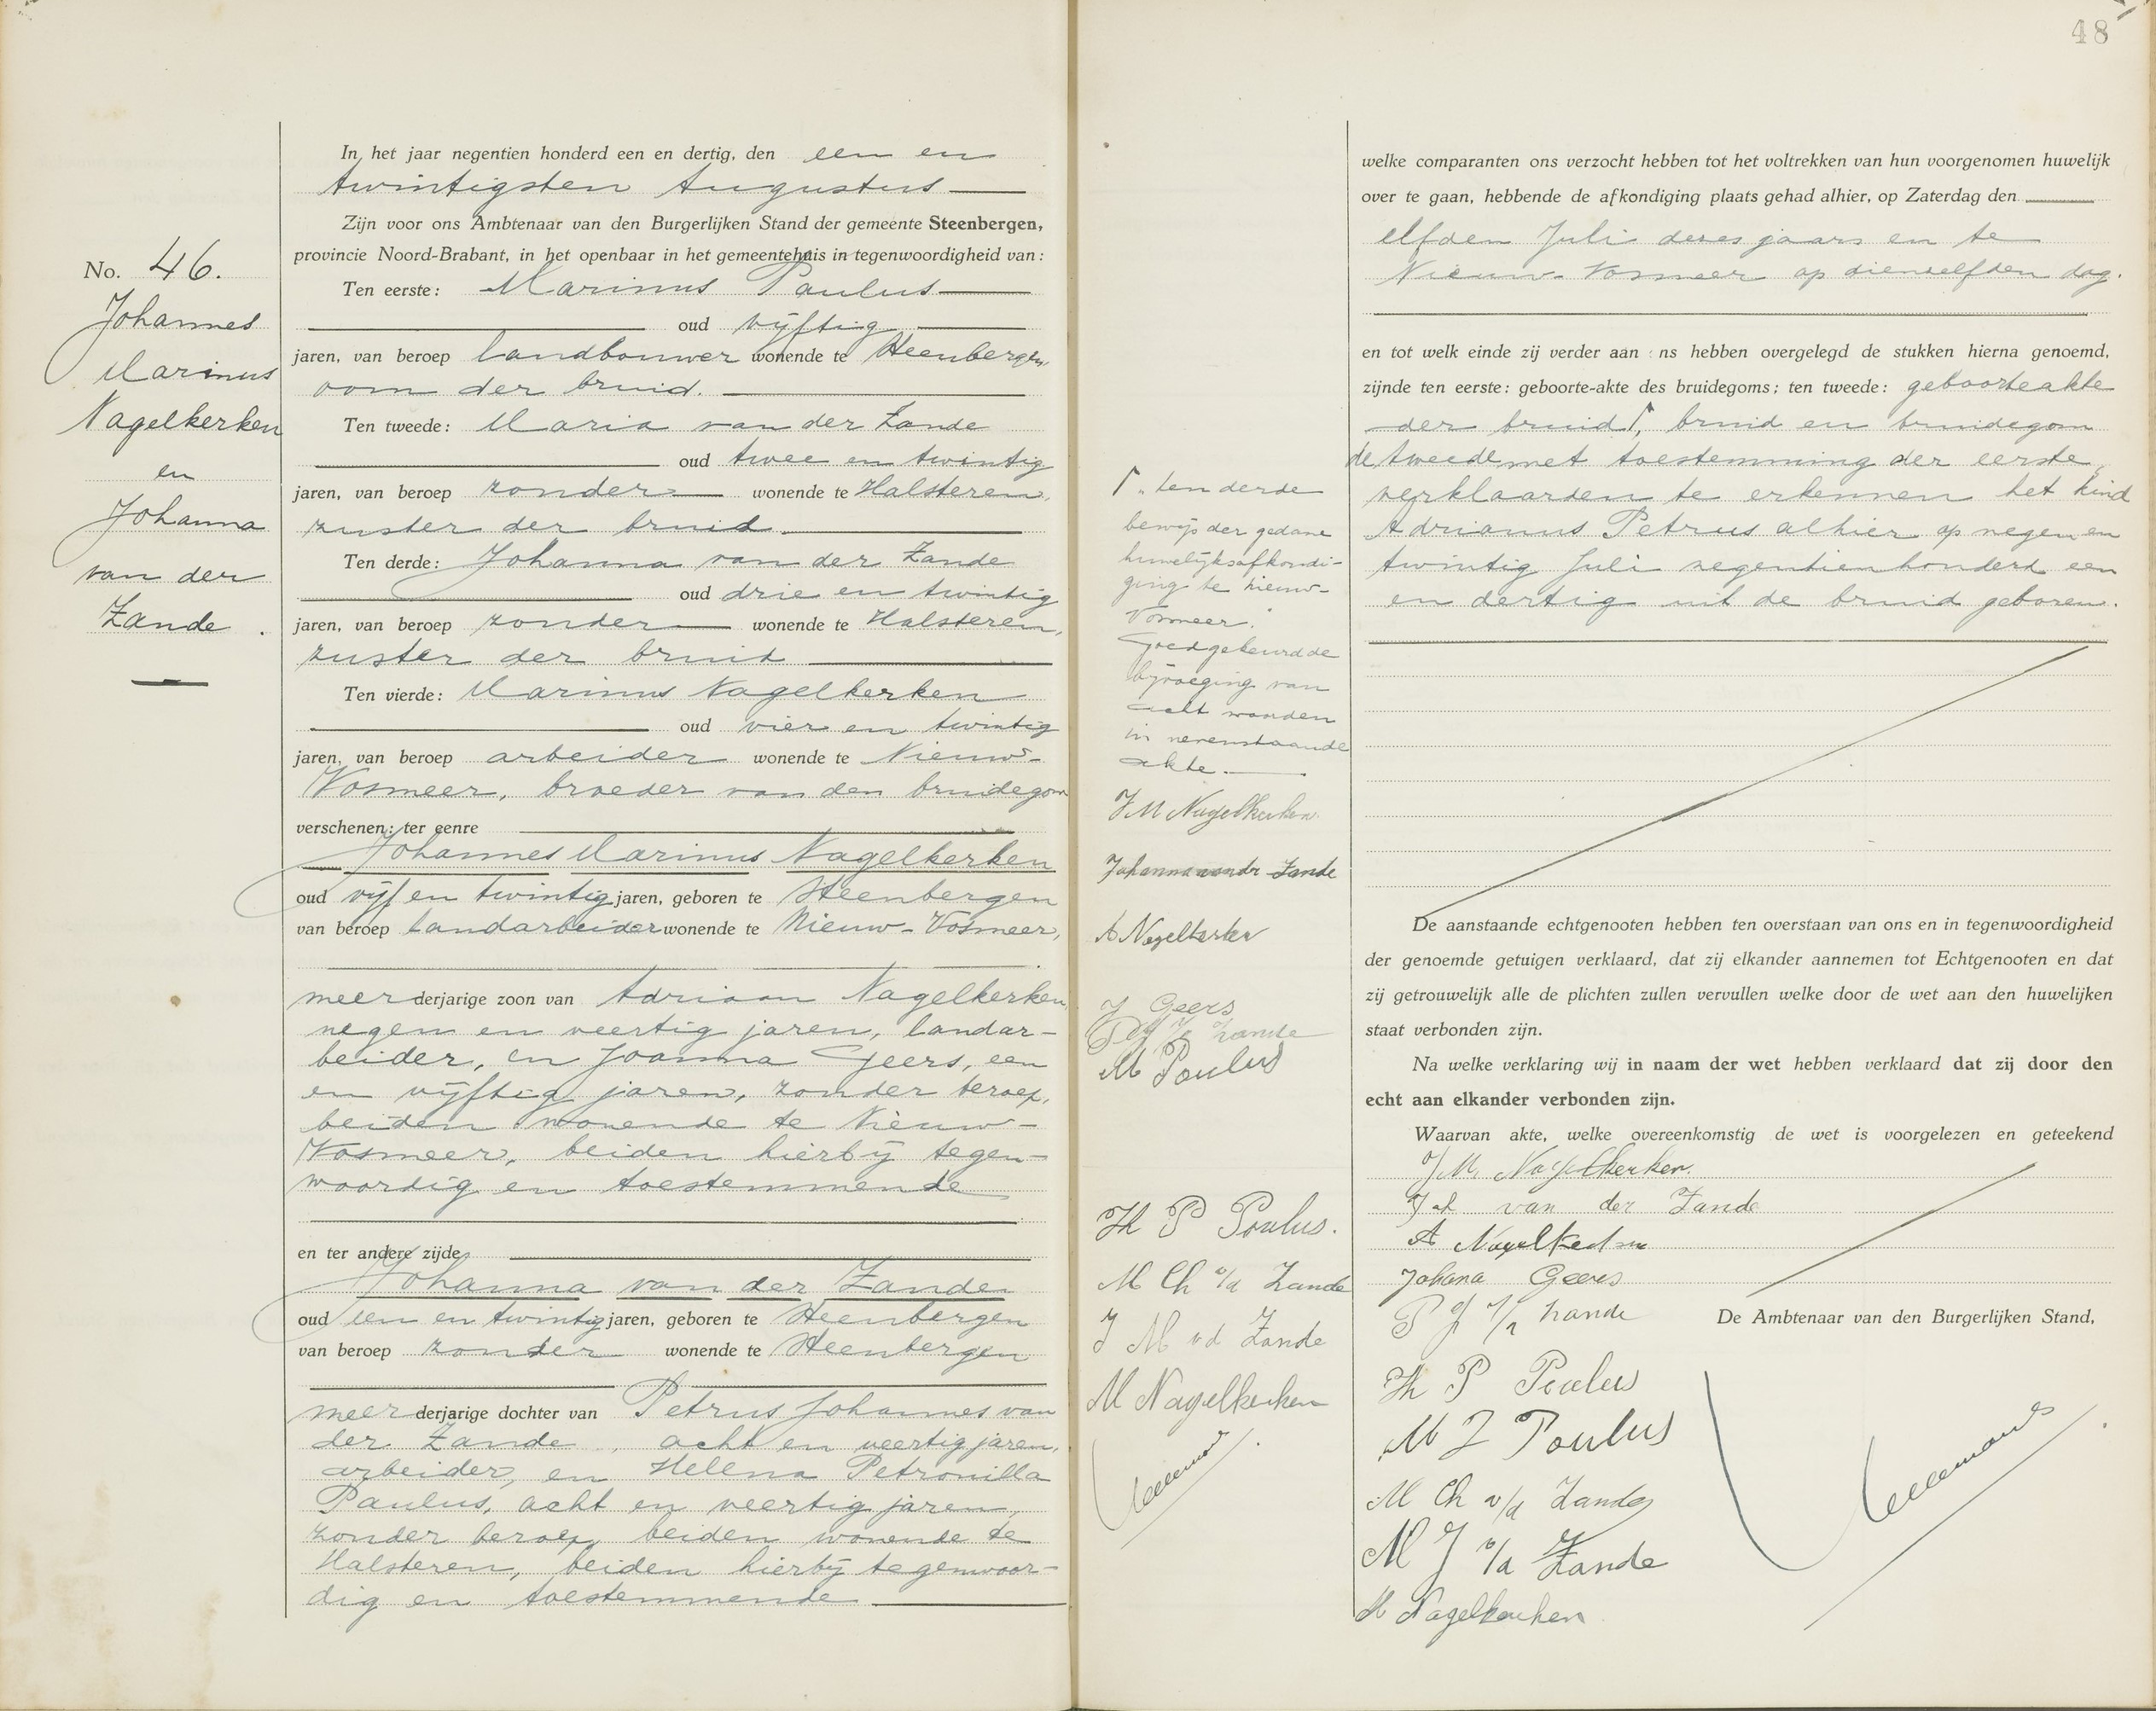 48
No. 46.
Johannes
Marinus
Nagelkerken
en
Johanna
van der
Zande.
In het jaar negentien honderd een en dertig, den een en
twintigsten Augustus
Zijn voor ons Ambtenaar van den Burgerlijken Stand der gemeente Steenbergen,
provincie Noord-Brabant, in het openbaar in het gemeentehuis in tegenwoordigheid van:
Ten eerste: Marinus Paulus
oud vijftig
jaren, van beroep landbouwer wonende te Steenbergen,
oom der bruid.
Ten tweede: Maria van der Zande
oud twee en twintig
jaren, van beroep zonder wonende te Halsteren,
zuster der bruid.
Ten derde: Johanna van der Zande
oud drie en twintig
jaren, van beroep zonder wonende te Halsteren,
zuster der bruid
Ten vierde: Marinus Nagelkerken
oud vier en twintig
jaren, van beroep arbeider wonende te Nieuw-
Vosmeer, broeder van den bruidegom
verschenen: ter eenre
Johannes Marinus Nagelkerken
oud vijf en twintig jaren, geboren te Steenbergen
van beroep landarbeider wonende te Nieuw-Vosmeer,
meerderjarige zoon van Adriaan Nagelkerken
negen en veertig jaren, landar-
beider, en Joanna Geers, een
en vijftig jaren, zonder beroep,
beiden wonende te Nieuw-
Vosmeer, beiden hierbij tegen-
woordig en toestemmende
en ter andere zijde
Johanna van der Zande
oud een en twintig jaren, geboren te Steenbergen
van beroep zonder wonende te Steenbergen
meerderjarige dochter van Petrus Johannes van
der Zande, acht en veertig jaren,
arbeider, en Helena Petronilla
Paulus, acht en veertig jaren,
zonder beroep, beiden wonende te
Halsteren, beiden hierbij tegenwoor-
dig en toestemmende
welke comparanten ons verzocht hebben tot het voltrekken van hun voorgenomen huwelijk
over te gaan, hebbende de afkondiging plaats gehad alhier, op Zaterdag den
elfden Juli dezes jaars en te
Nieuw-Vosmeer op dienzelfden dag.
en tot welk einde zij verder aan ns hebben overgelegd de stukken hierna genoemd,
zijnde ten eerste: geboorte-akte des bruidegoms; ten tweede: geboorteakte
der bruid ſ, bruid en bruidegom
de tweede met toestemming der eerste,
verklaarden te erkennen het kind
Adrianus Petrus alhier op negen en
twintig Juli negentienhonderd een
en dertig uit de bruid geboren.
ſ. ten derde
bewijs der gedane
huwelijksafkondi-
ging te Nieuw-
Vosmeer.
Goedgekeurd de
bijvoeging van
acht woorden
in nevenstaande
akte.
J M Nagelkerken
Johanna van dr Zande
A Nagelkerken
J Geers
P J v/d Zande
M Poulus
H P Poulus.
M Ch v/d Zande
J M v d Zande
M Nagelkerken
De aanstaande echtgenooten hebben ten overstaan van ons en in tegenwoordigheid
der genoemde getuigen verklaard, dat zij elkander aannemen tot Echtgenooten en dat
zij getrouwelijk alle de plichten zullen vervullen welke door de wet aan den huwelijken
staat verbonden zijn.
Na welke verklaring wij in naam der wet hebben verklaard dat zij door den
echt aan elkander verbonden zijn.
Waarvan akte, welke overeenkomstig de wet is voorgelezen en geteekend
J M. Nagelkerken.
Joh van der Zande
A Nagelkerken
Johana Geers
P J v/d Zande
De Ambtenaar van den Burgerlijken Stand,
H P Poulus
M J Poulus
M Ch v/d Zande
M J v/d Zande
M Nagelkerken